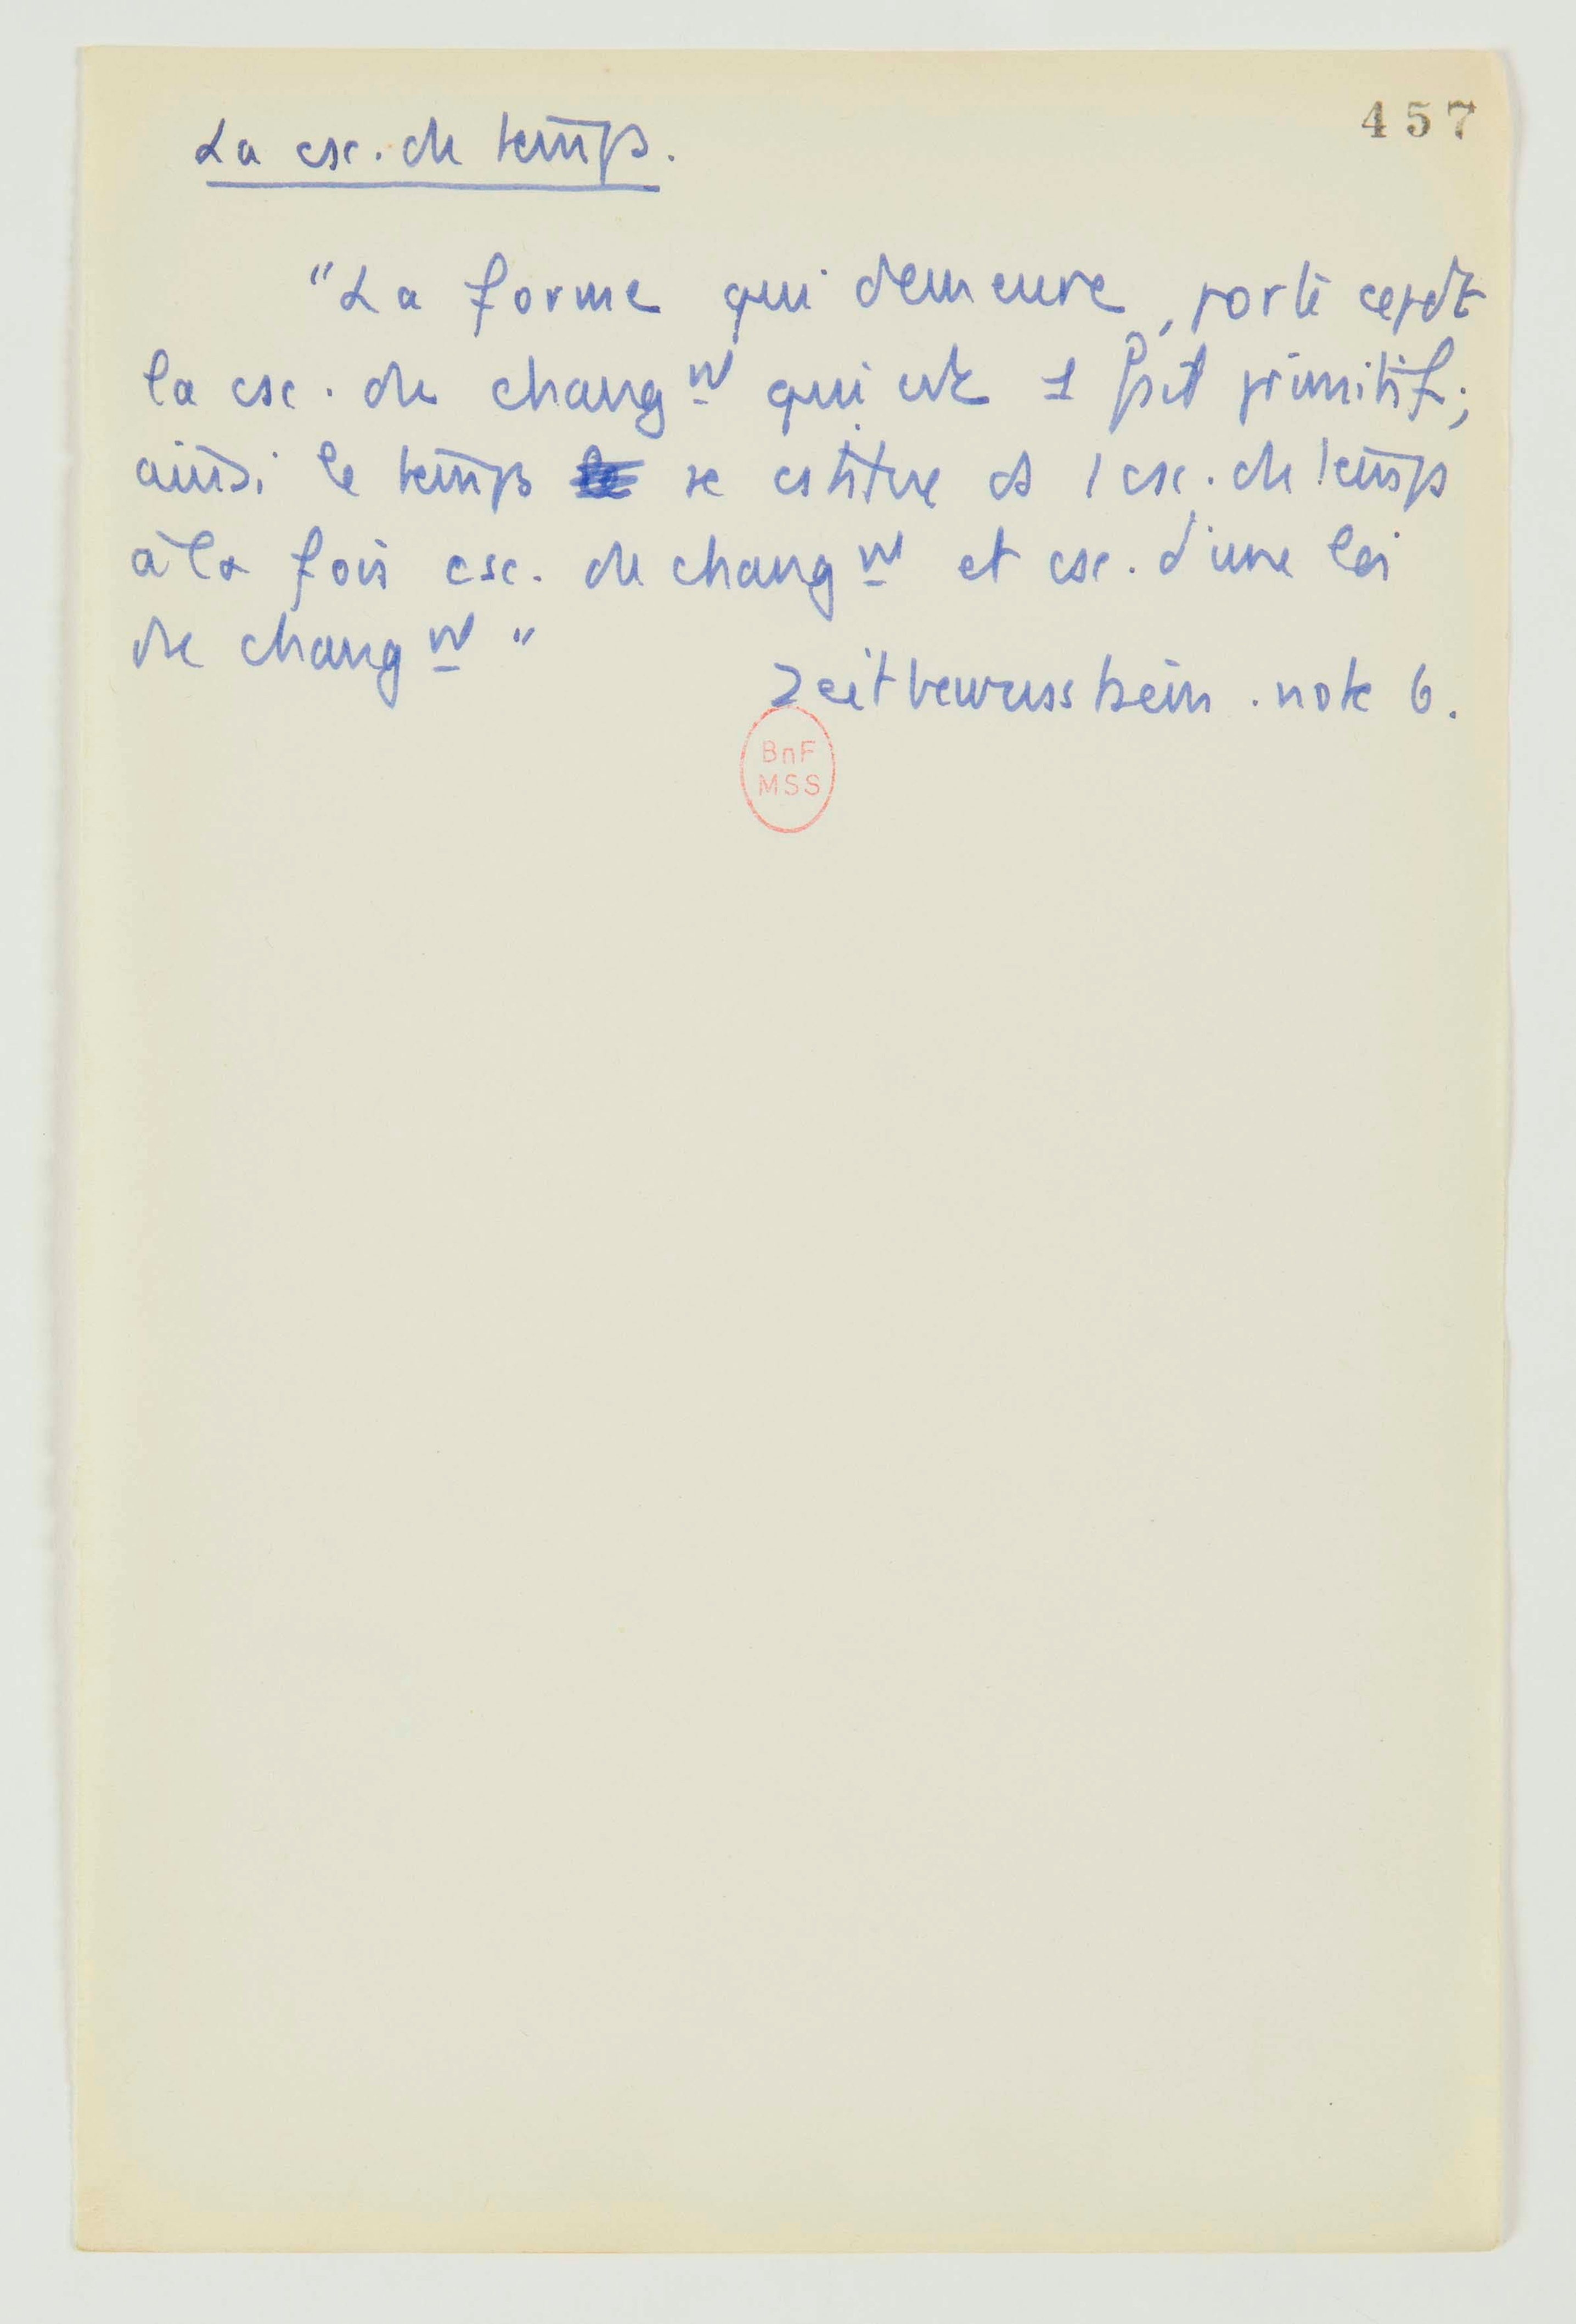 457
La csc. de temps.
"La forme qui demeure, porte cepdt
la csc. de changnt qui est 1 fait primitif;
ainsi le temps se cstitue ds 1 csc. de temps
à la fois csc. de changnt et csc. d'une loi
de changnt"
Zeitbewusstsein. note 6.
BnF
MSS